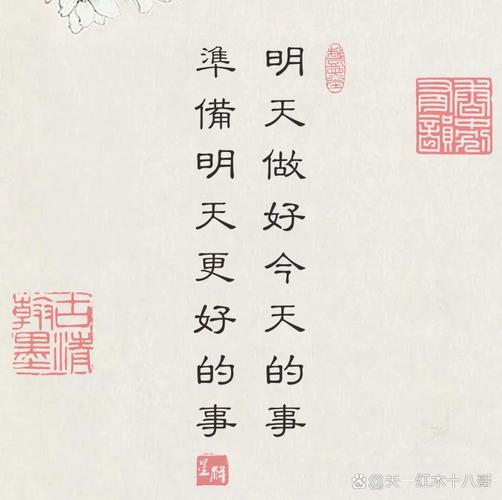 明天做好今天的事
準備明天更好的事
古清
翰墨
@天一红木十八哥